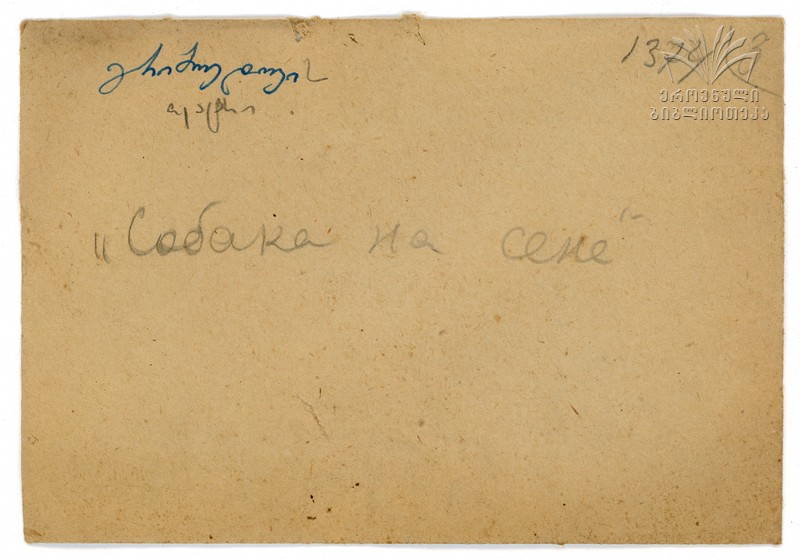 გრიბოედოვის
თეატრი
ეროვნული
ბიბლიოთეკა
„Собака на сене“